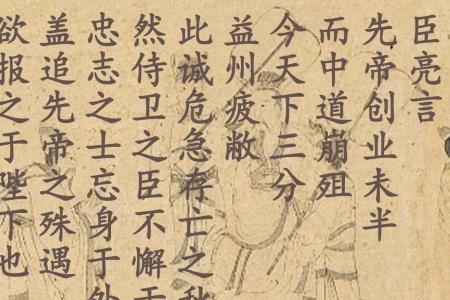 臣亮言
先帝创业未半
而中道崩殂
今天下三分
益州疲敝
此诚危急存亡之秋
然侍卫之臣不懈于
忠志之士忘身于外
盖追先帝之殊遇
欲报之于陛下也